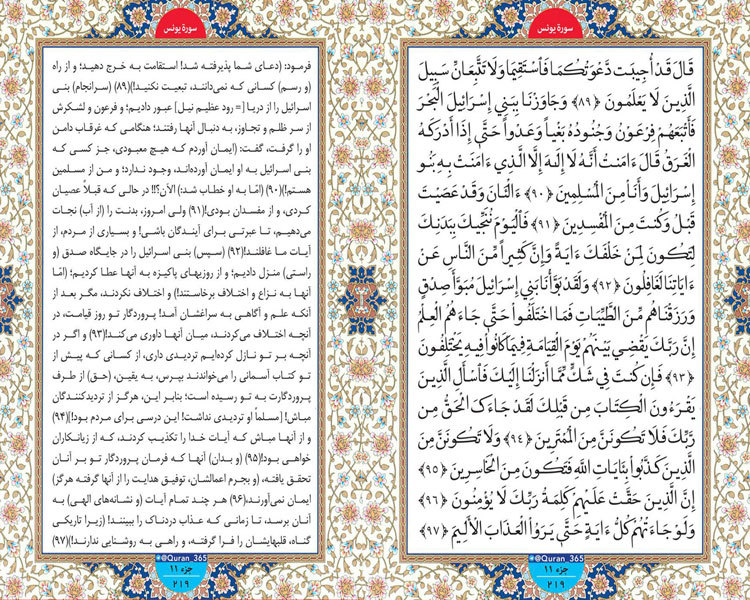 سورة یونس
قَالَ قَدْ أُجِيبَت دَّعْوَتُكُمَا فَاسْتَقِيمَا وَلَا تَتَّبِعَانِّ سَبِيلَ
الَّذِينَ لَا يَعْلَمُونَ ﴿۸۹﴾ وَجَاوَزْنَا بِبَنِي إِسْرَائِيلَ الْبَحْرَ
فَأَتْبَعَهُمْ فِرْعَوْنُ وَجُنُودُهُ بَغْياً وَعَدْواً حَتَّى إِذَا أَدْرَكَهُ
الْغَرَقُ قَالَ ءَامَنتُ أَنَّهُ لَا إِلَهَ إِلَّا الَّذِي ءَامَنَتْ بِهِ بَنُو
إِسْرَائِيلَ وَأَنَا مِنَ الْمُسْلِمِينَ ﴿۹۰﴾ ءَالْآنَ وَقَدْ عَصَيْتَ
قَبْلُ وَكُنتَ مِنَ الْمُفْسِدِينَ ﴿۹۱﴾ فَالْيَوْمَ نُنَجِّيكَ بِبَدَنِكَ
لِتَكُونَ لِمَنْ خَلْفَكَ ءَايَةً وَإِنَّ كَثِيراً مِّنَ النَّاسِ عَنْ
ءَايَاتِنَا لَغَافِلُونَ ﴿۹۲﴾ وَلَقَدْ بَوَّأْنَا بَنِي إِسْرَائِيلَ مُبَوَّأَ صِدْقٍ
وَرَزَقْنَاهُم مِّنَ الطَّيِّبَاتِ فَمَا اخْتَلَفُوا حَتَّى جَاءَهُمُ الْعِلْمُ
إِنَّ رَبَّكَ يَقْضِي بَيْنَهُمْ يَوْمَ الْقِيَامَةِ فِيمَا كَانُوا فِيهِ يَخْتَلِفُونَ
﴿۹۳﴾ فَإِن كُنتَ فِي شَكٍّ مِّمَّا أَنزَلْنَا إِلَيْكَ فَاسْأَلِ الَّذِينَ
يَقْرَءُونَ الْكِتَابَ مِن قَبْلِكَ لَقَدْ جَاءَكَ الْحَقُّ مِن
رَّبِّكَ فَلَا تَكُونَنَّ مِنَ الْمُمْتَرِينَ ﴿۹۴﴾ وَلَا تَكُونَنَّ مِنَ
الَّذِينَ كَذَّبُوا بِئَايَاتِ اللَّهِ فَتَكُونَ مِنَ الْخَاسِرِينَ ﴿۹۵﴾
إِنَّ الَّذِينَ حَقَّتْ عَلَيْهِمْ كَلِمَةُ رَبِّكَ لَا يُؤْمِنُونَ ﴿۹۶﴾
وَلَوْ جَاءَتْهُمْ كُلُّ ءَايَةٍ حَتَّى يَرَوُا الْعَذَابَ الْأَلِيمَ ﴿۹۷﴾
@Quran_365
جزء ۱۱
۲۱۹
سورة یونس
فرمود: (دعای شما پذیرفته شد! استقامت به خرج دهید؛ و از راه
(و رسم) کسانی که نمی‌دانند، تبعیت نکنید!)(۸۹) (سرانجام) بنی
اسرائیل را از دریا [= رود عظیم نیل] عبور دادیم؛ و فرعون و لشکرش
از سر ظلم و تجاوز، به دنبال آنها رفتند؛ هنگامی که غرقاب دامن
او را گرفت، گفت: (ایمان آوردم که هیچ معبودی، جز کسی که
بنی اسرائیل به او ایمان آورده‌اند، وجود ندارد؛ و من از مسلمین
هستم!)(۹۰) (امّا به او خطاب شد:) الآن؟!! در حالی که قبلاً عصیان
کردی، و از مفسدان بودی!(۹۱) ولی امروز، بدنت را (از آب) نجات
می‌دهیم، تا عبرتی برای آیندگان باشی! و بسیاری از مردم، از
آیات ما غافلند!(۹۲) (سپس) بنی اسرائیل را در جایگاه صدق (و
راستی) منزل دادیم؛ و از روزیهای پاکیزه به آنها عطا کردیم؛ (امّا
آنها به نزاع و اختلاف برخاستند!) و اختلاف نکردند، مگر بعد از
آنکه علم و آگاهی به سراغشان آمد! پروردگار تو روز قیامت، در
آنچه اختلاف می‌کردند، میان آنها داوری می‌کند!(۹۳) و اگر در
آنچه بر تو نازل کرده‌ایم تردیدی داری، از کسانی که پیش از
تو کتاب آسمانی را می‌خواندند بپرس، به یقین، (حق) از طرف
پروردگارت به تو رسیده است؛ بنابر این، هرگز از تردیدکنندگان
مباش! [مسلماً او تردیدی نداشت! این درسی برای مردم بود!](۹۴)
و از آنها مباش که آیات خدا را تکذیب کردند، که از زیانکاران
خواهی بود!(۹۵) (و بدان) آنها که فرمان پروردگار تو بر آنان
تحقق یافته، (و بجرم اعمالشان، توفیق هدایت را از آنها گرفته هرگز)
ایمان نمی‌آورند،(۹۶) هر چند تمام آیات (و نشانه‌های الهی) به
آنان برسد، تا زمانی که عذاب دردناک را ببینند! (زیرا تاریکی
گناه، قلبهایشان را فرا گرفته، و راهی به روشنایی ندارند!)(۹۷)
@Quran_365
جزء ۱۱
۲۱۹